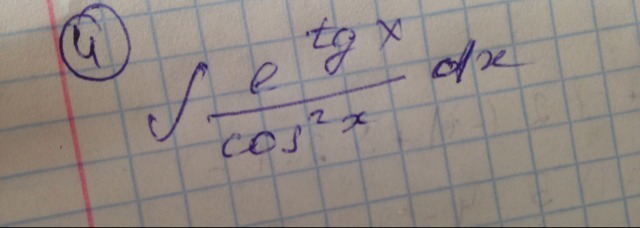 4
∫ e^{tg x} / cos² x dx